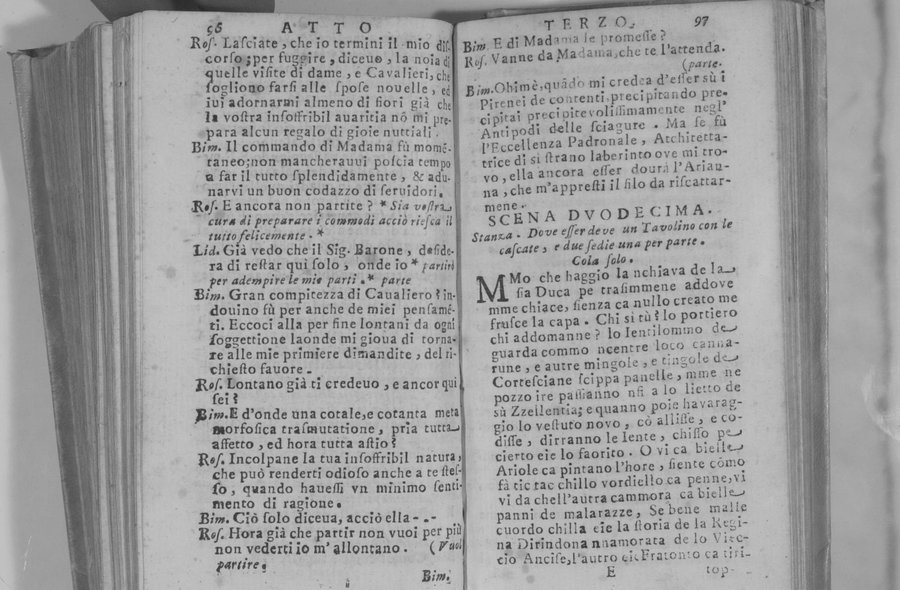 96 ATTO
Ros. Lasciate, che io termini il mio dis
corso; per fuggire, diceuo, la noia di
quelle visite di dame, e Cavalieri, che
sogliono farsi alle spose nouelle, ed
iui adornarmi almeno di fiori già che
la vostra insoffribil auaritia nō mi pre-
para alcun regalo di gioie nuttiali.
Bim. Il commando di Madama fù momē-
taneo; non mancherauui poscia tempo
a far il tutto splendidamente, & adu-
narvi un buon codazzo di seruidori.
Ros. E ancora non partite? * Sia vostra
cura di preparare i commodi acciò riesca il
tutto felicemente. *
Lid. Già vedo che il Sig. Barone, deside-
ra di restar qui solo, onde io * partirò
per adempire le mie parti. * parte
Bim. Gran compitezza di Caualiero! in-
douino fù per anche de miei pensamē-
ti. Eccoci alla per fine lontani da ogni
soggettione laonde mi gioua di torna-
re alle mie primiere dimandite, del ri-
chiesto fauore.
Ros. Lontano già ti credeuo, e ancor qui
sei?
Bim. E d'onde una cotale, e cotanta meta
morfosica trasmutatione, pria tutta
affetto, ed hora tutta astio?
Ros. Incolpane la tua insoffribil natura,
che può renderti odioso anche a te stes-
so, quando hauessi vn minimo senti-
mento di ragione.
Bim. Ciò solo diceua, acciò ella - . -
Ros. Hora già che partir non vuoi per più
non vederti io m'allontano. (Vuol
partire.
Bim.
TERZO. 97
Bim. E di Madama le promesse?
Ros. Vanne da Madama, che te l'attenda.
(parte.
Bim. Ohimè, quādo mi credea d'esser sù i
Pirenei de contenti, precipitando pre-
cipitai precipitevolissimamente negl'
Antipodi delle sciagure. Ma se fù
l'Eccellenza Padronale, Architetta-
trice di si strano laberinto ove mi tro-
vo, ella ancora esser dourà l'Arian-
na, che m'appresti il filo da riscattar-
mene.
SCENA DVODECIMA.
Stanza. Dove esser deve un Tavolino con le
cascate, e due sedie una per parte.
Cola solo.
MMo che haggio la nchiava de la
sia Duca pe trasimmene addove
mme chiace, sienza ca nullo creato me
frusce la capa. Chi si tù? lo portiero
chi addomanne? lo Ientilommo de
guarda commo ncentre loco canna-
rune, e autre mingole, e tingole de
Cortesciane scippa panelle, mme ne
pozzo ire passianno nfi a lo lietto de
sù Zzellentia; e quanno poie havarag-
gio lo vestuto novo, cò allisse, e co-
disse, dirranno le Iente, chisso pe
cierto eie lo faorito. O vi ca bielle
Ariole ca pintano l'hore, siente cōmo
fà tic tac chillo vordiello ca penne, vi
vi da chell'autra cammora ca bielle
panni de malarazze, Se bene malle
cuordo chilla eie la storia de la Regi-
na Dirindona nnamorata de lo Viec-
cio Ancise, l'autro eie Fratonto ca tiri-
E top-